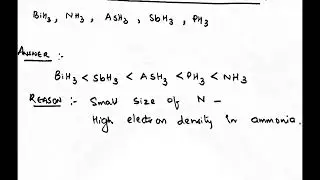 BiH3, NH3, AsH3, SbH3, PH3
ANSWER :-
BiH3 < SbH3 < AsH3 < PH3 < NH3
REASON :- Small size of N -
High electron density in ammonia.